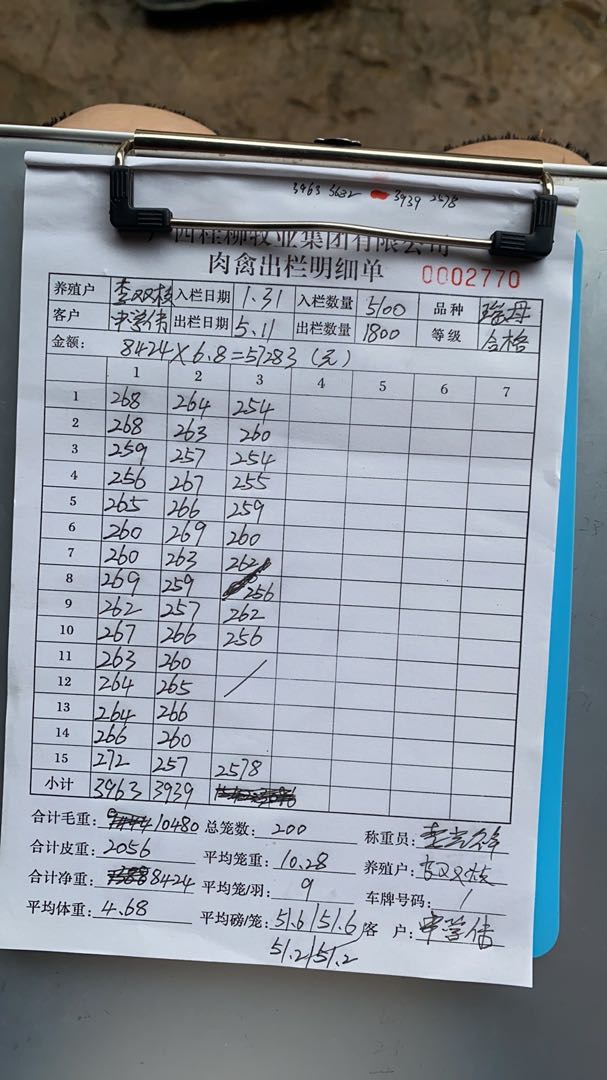 3963 5632 3939 2578
广西桂柳牧业集团有限公司
肉禽出栏明细单 0002770
养殖户 李双枝 入栏日期 1.31 入栏数量 5100 品种 瑶母
客户 出栏日期 5.11 出栏数量 1800 等级 合格
金额: 8424×6.8=57283(元)
1 2 3 4 5 6 7
1 268 264 254
2 268 263 260
3 259 257 254
4 256 267 255
5 265 266 259
6 260 269 260
7 260 263 262
8 269 259 256
9 262 257 262
10 267 266 256
11 263 260
12 264 265
13 264 266
14 266 260
15 272 257 2578
小计 3963 3939
合计毛重: 10480 总笼数: 200 称重员:
合计皮重: 2056 平均笼重: 10.28 养殖户: 李双枝
合计净重: 8424 平均笼/羽: 9 车牌号码: /
平均体重: 4.68 平均磅/笼: 51.6/51.6 客 户:
51.2/51.2